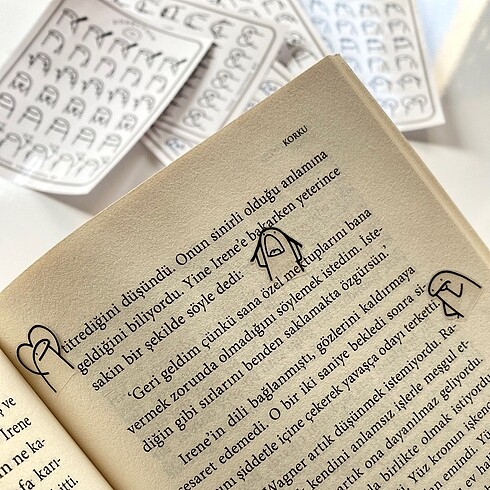 KORKU
istrediğini düşündü. Onun sinirli olduğu anlamına
geldiğini biliyordu. Yine Irene'e bakarken yeterince
sakin bir şekilde söyle dedi:
'Geri geldim çünkü sana özel mektuplarını bana
vermek zorunda olmadığını söylemek istedim. İste-
diğin gibi sırlarını benden saklamakta özgürsün.'
Irene'in dili bağlanmıştı, gözlerini kaldırmaya
cesaret edemedi. O bir iki saniye bekledi sonra
şiddetle içine çekerek yavaşça odayı
Wagner artık düşünmek istemiyordu. Ra-
kendini anlamsız işlerle meşgul et-
artık ona dayanılmaz geliyordu.
birlikte olmak istiyordu
Yüz kronun
emindi. Yüz
ev
ş ve
Irene
n ne ka-
fa karı-
itti.